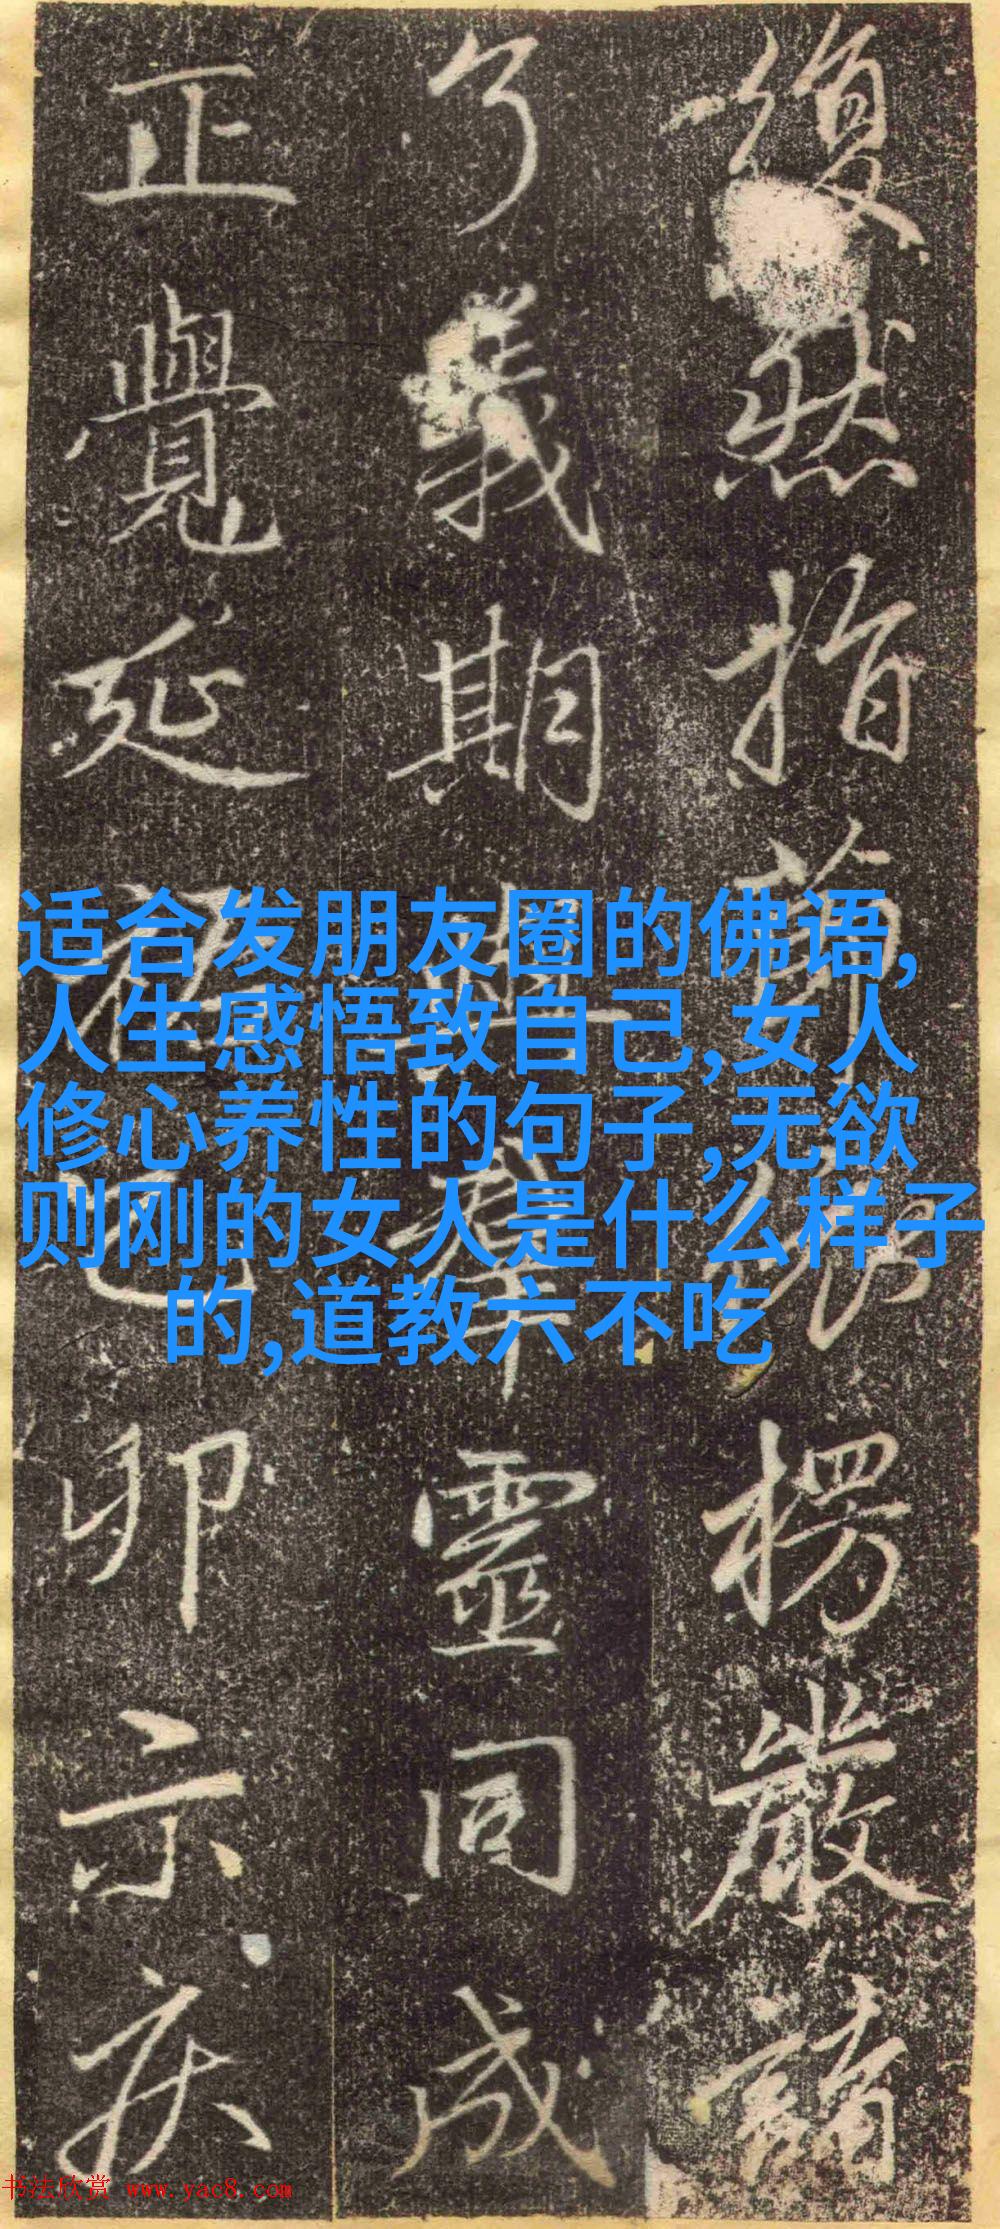 復然指節錫楞嚴請
了義期與群靈同成
正覺延祝己卯示疾
适合发朋友圈的佛语,
人生感悟致自己,女人
修心养性的句子,无欲
则刚的女人是什么样子
的,道教六不吃
书法欣赏 www.yac8.com